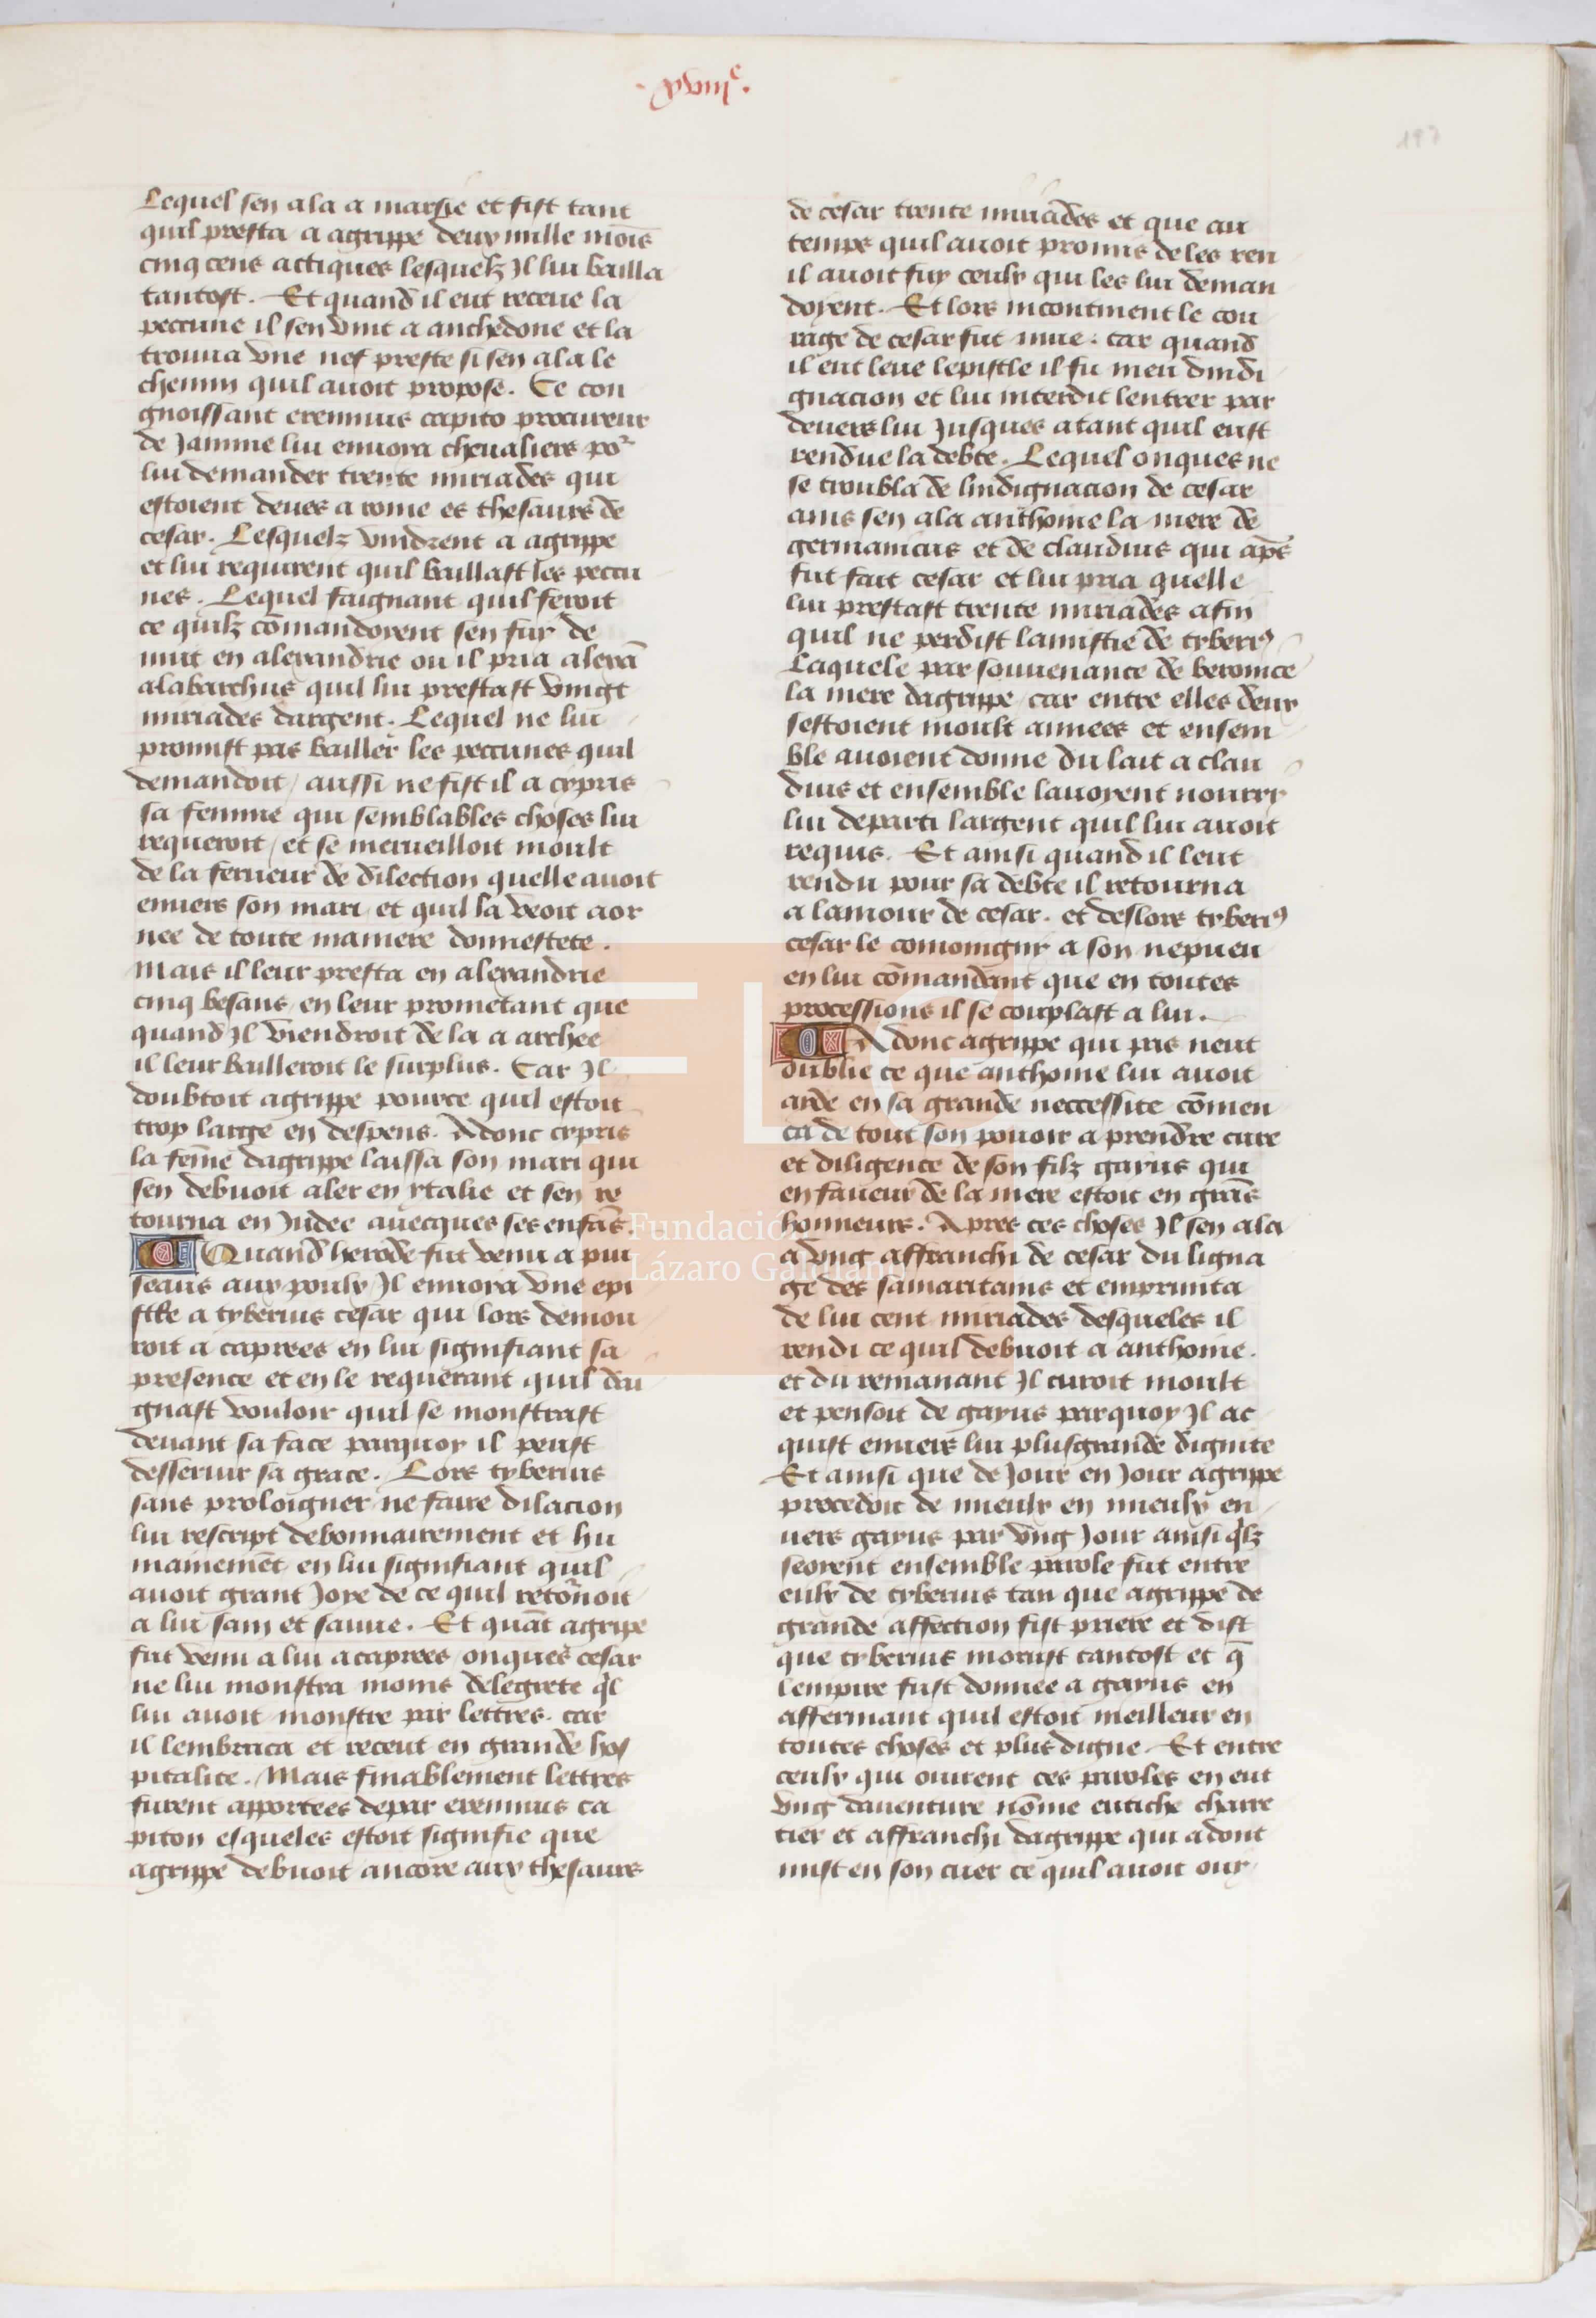 .xviijᵉ.
197
Lequel sen ala a marsie et fist tant
quil presta a agrippe deux mille mois̄
cinq cens attiques lesquelz Jl lui bailla
tantost. Et quand il eut receue la
peccune il sen vint a anthedone et la
trouua vne nef preste si sen ala le
chemin quil auoit propose. Ce con
gnoissant erennius capito procureur
de Jamnie lui enuoya cheualiers poʳ
lui demander trente miriades qui
estoient deues a rome es thesaurs de
cesar. Lesquelz vindrent a agrippe
et lui requirent quil baillast les peccu
nes. Lequel faignant quil feroit
ce quilz cōmandoyent sen fuy de
nuit en alexandrie ou il pria alexā
alabarchus quil lui prestast vingt
miriades dargent. Lequel ne lui
promist pas bailler les peccunes quil
demandoit / aussi ne fist il a cypris
sa femme qui semblables choses lui
requeroit / et se merueilloit moult
de la ferueur de dilection quelle auoit
enuers son mari et quil la veoit aor
nee de toute maniere donnestete.
Mais il leur presta en alexandrie
cinq besans en leur prometant que
quand Jl viendroit de la a archee
il leur bailleroit le surplus. Car Jl
doubtoit agrippe pource quil estoit
trop large en despens. Adonc cypris
la fēme dagrippe laissa son mari qui
sen debuoit aler en ytalie et sen re
tourna en Judee auecques ses enfās.
Quand herode fut venu a pui
seaus aux poulx Jl enuoya vne epi
stle a tyberius cesar qui lors demou
roit a caprees en lui signifiant sa
presence et en le requerant quil dai
gnast vouloir quil se monstrast
deuant sa face parquoy il peust
desseruir sa grace. Lors tyberius
sans proloigner ne faire dilacion
lui rescript debonnairement et hu
mainemēt en lui signifiant quil
auoit grant Joye de ce quil retoʳnoit
a lui sain et sauue. Et quāt agripe
fut venu a lui a caprees / onques cesar
ne lui monstra moins delegrete q̄l
lui auoit monstre par lettres. car
il lembraca et receut en grande hos
pitalite. Mais finablement lettres
furent apportees depar erennius ca
piton esqueles estoit signifie que
agrippe debuoit ancore aux thesaurs
de cesar trente miriades et que au
temps quil auoit promis de les ren
il auoit fuy ceulx qui les lui deman
doyent. Et lors incontinent le cou
rage de cesar fut mue. car quand
il eut leue lepistle il fu meu dindi
gnacion et lui interdit lentrer par
deuers lui Jusques atant quil eust
rendue la debte. Lequel onques ne
se troubla de lindignacion de cesar
ains sen ala anthoine la mere de
germanicus et de claudius qui ap̄s
fut fait cesar et lui pria quelle
lui prestast trente miriades afin
quil ne perdist lamistie de tyberiꝰ
Laquele par souuenance de beronice
la mere dagrippe / car entre elles deux
sestoient moult amees et ensem
ble auoient donne du lait a clau
dius et ensemble lauoyent nourry
lui departi largent quil lui auoit
requis. Et ainsi quand il leut
rendu pour sa debte il retourna
a lamour de cesar. et deslors tyberiꝰ
cesar le comoingny a son nepueu
en lui cōmandant que en toutes
processions il se couplast a lui.
Adonc agrippe qui pas neut
oublie ce que anthoine lui auoit
aide en sa grande neccessite cōmen
ca de tout son pouoir a prendre cure
et diligence de son filz gayus qui
en faueur de la mere estoit en grās
honneurs. Apres ces choses Jl sen ala
a vng affranchi de cesar du ligna
ge des samaritains et emprunta
de lui cent miriades desqueles il
rendi ce quil debuoit a anthoine.
et du remanant Jl curoit moult
et pensoit de gayus parquoy Jl ac
quist enuers lui plusgrande dignite
Et ainsi que de Jour en Jour agrippe
procedoit de mieulx en mieulx en
uers gayus par vng Jour ainsi q̄lz
seoyent ensemble parole fut entre
eulx de tyberius tan que agrippe de
grande affection fist priere et dist
que tyberius morust tantost et q̄
lempire fust donnee a gayus en
affermant quil estoit meilleur en
toutes choses et plus digne. Et entre
ceulx qui ouirent ces paroles en eut
vng dauenture nōme eutiche charre
tier et affranchi dagrippe qui adont
mist en son cuer ce quil auoit ouy
Fundación
Lázaro Galdiano